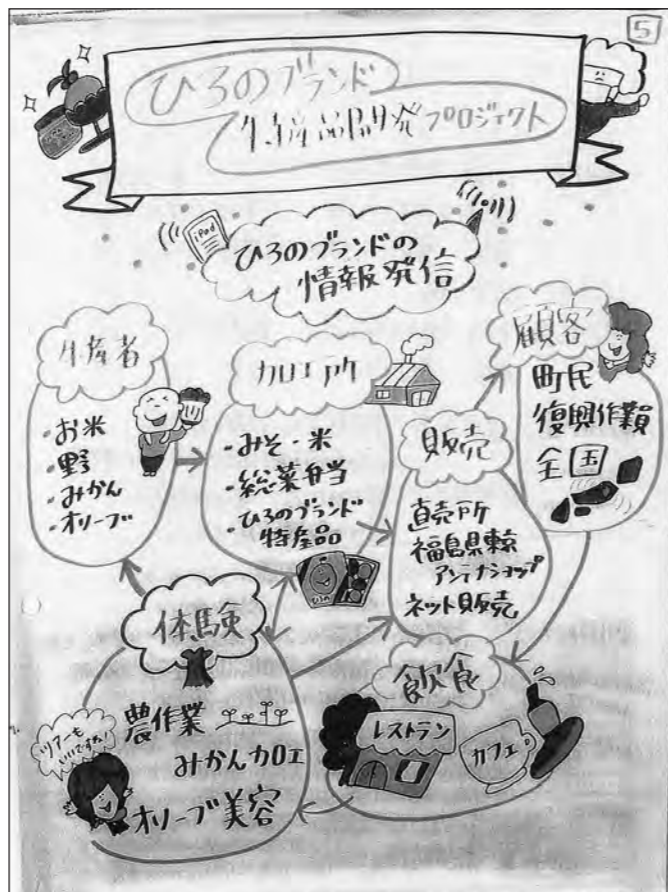 5
ひろのブランド
生産品開発プロジェクト
iPod
ひろのブランドの
情報発信
生産者
・お米
・野
・みかん
・オリーブ
加工所
・みそ・米
・総菜弁当
・ひろのブランド
特産品
販売
直売所
福島県東京
アンテナショップ
ネット販売
顧客
町民
復興作業員
全国
体験
農作業
みかん加工
オリーブ美容
ツアーも
いいですね!
飲食
レストラン
カフェ